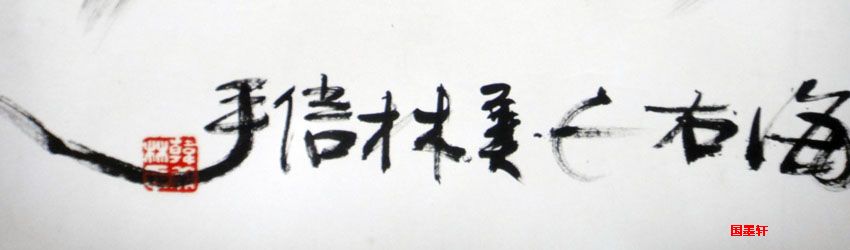 海右美林信手
国墨轩